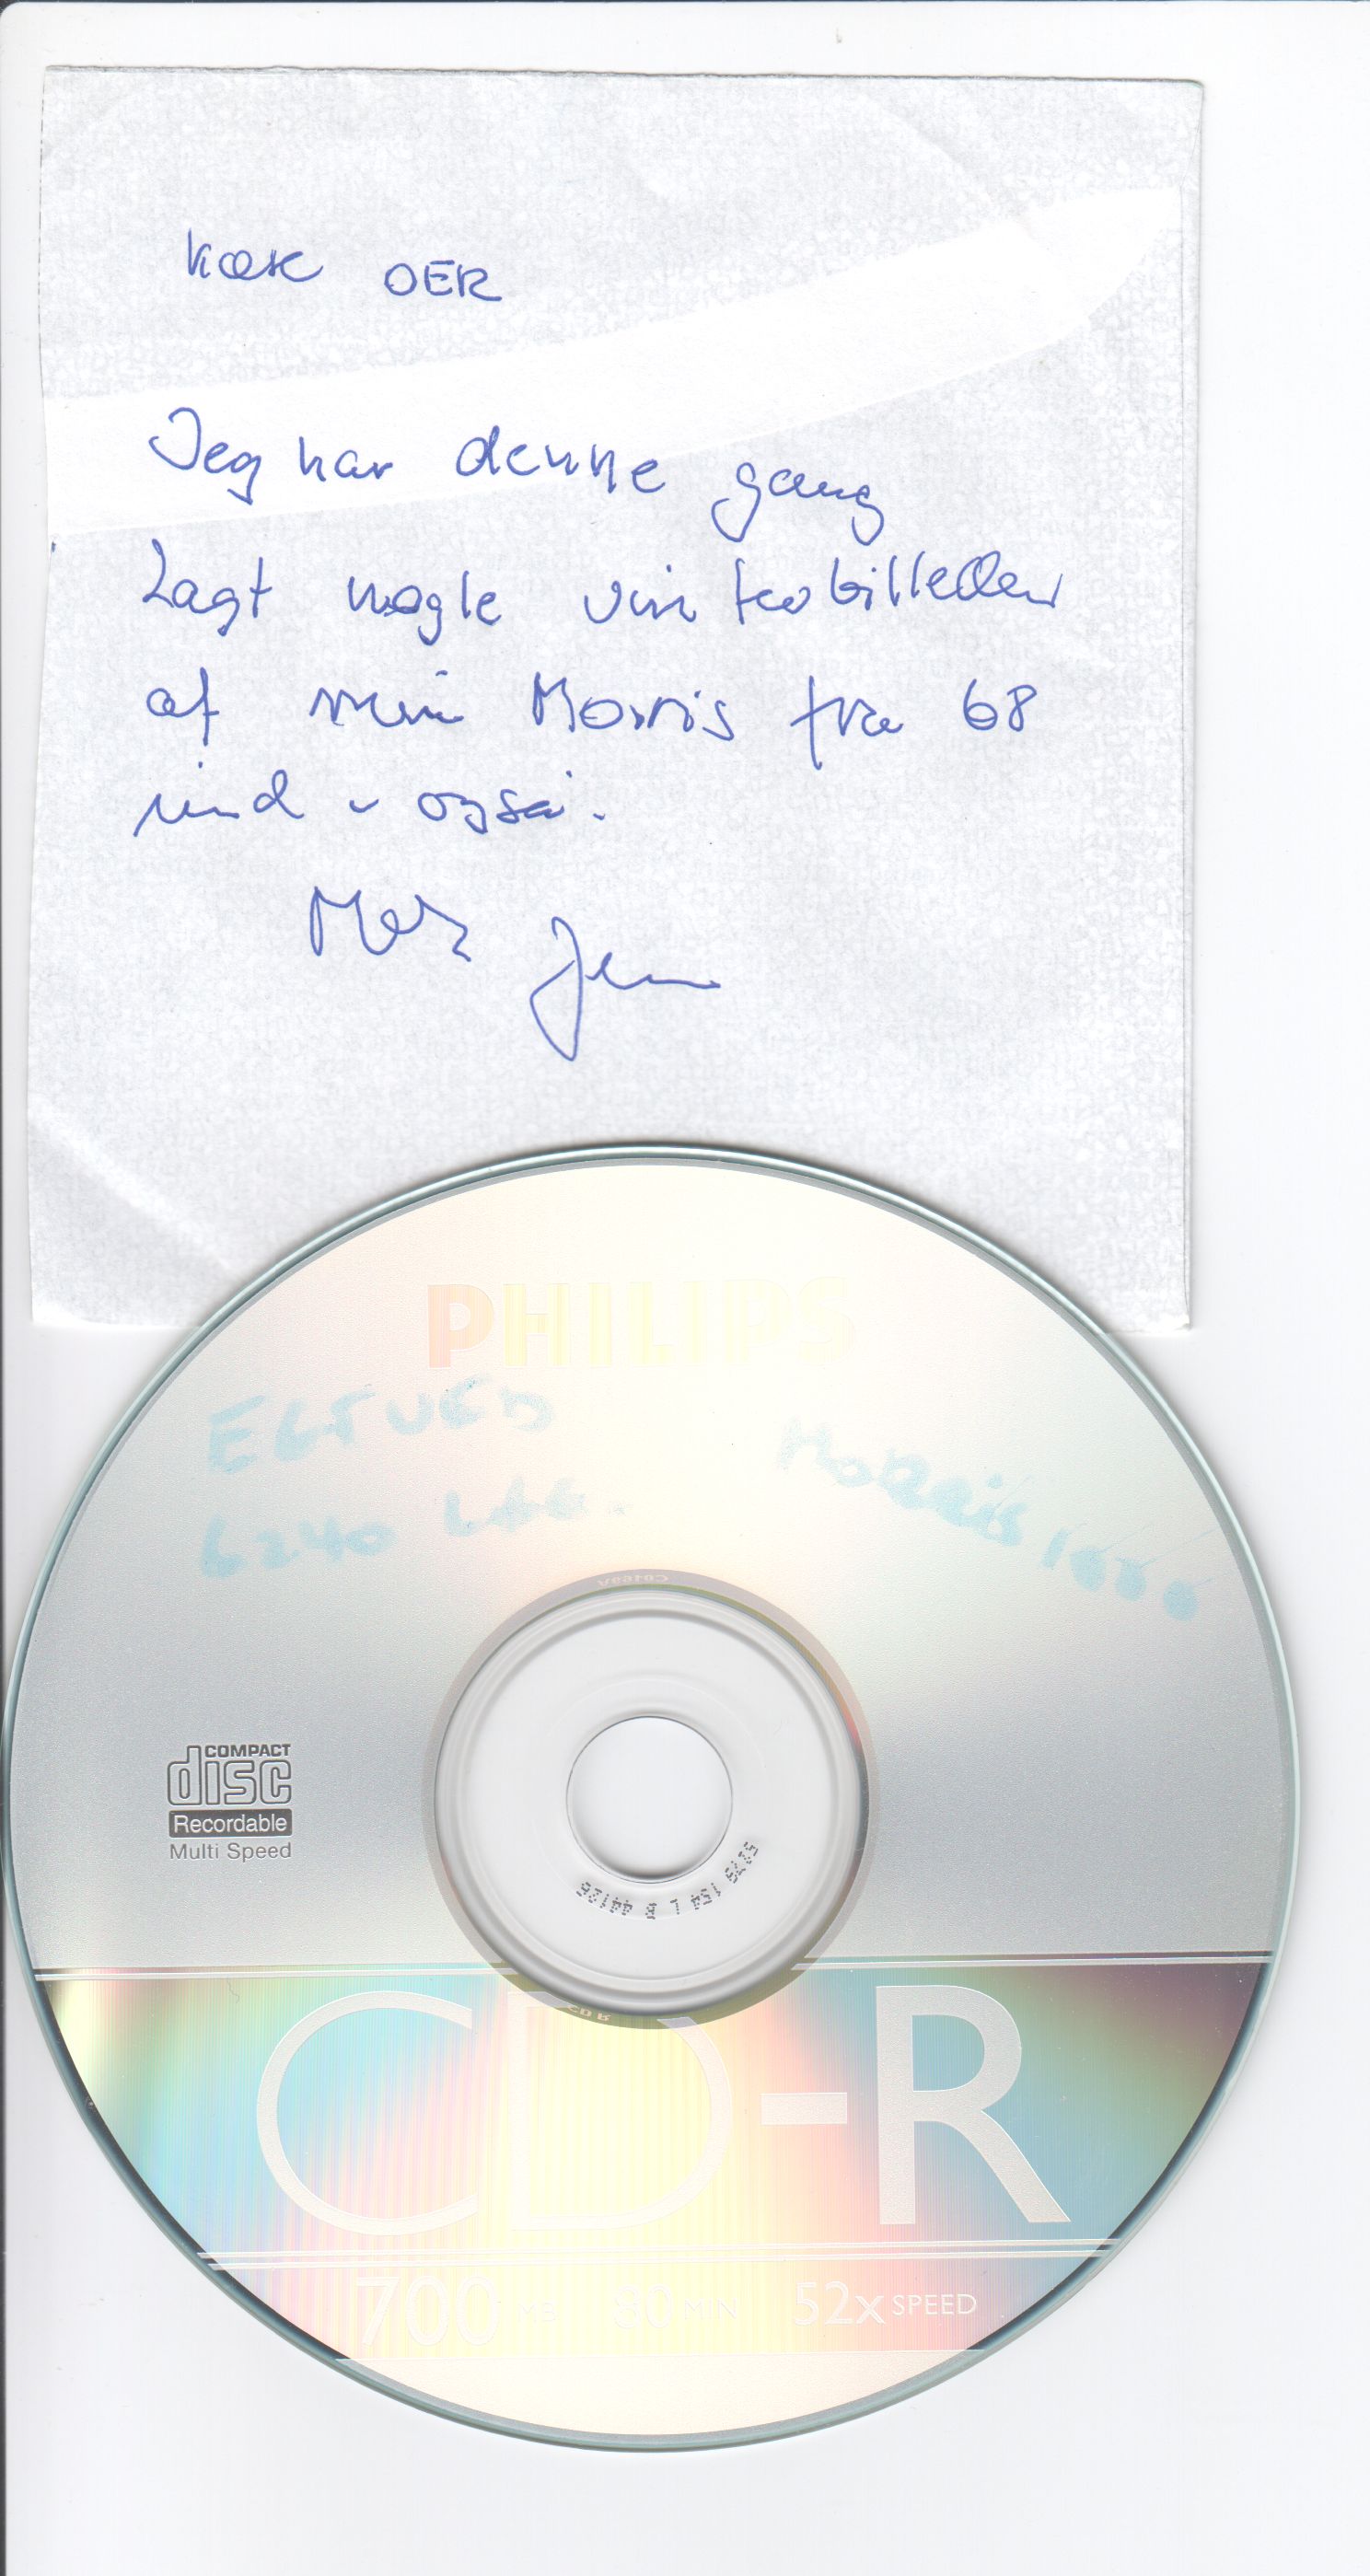 Kære OER
Jeg har denne gang
Lagt nogle vinterbilleder
af min Morris fra 68
ind - også.
Mvh Jens
PHILIPS
EGTVED
6240 LGG.
MORRIS 1000
COMPACT
disc
Recordable
Multi Speed
5279 154 L B 44126
CD-R
700 MB 80 MIN 52x SPEED